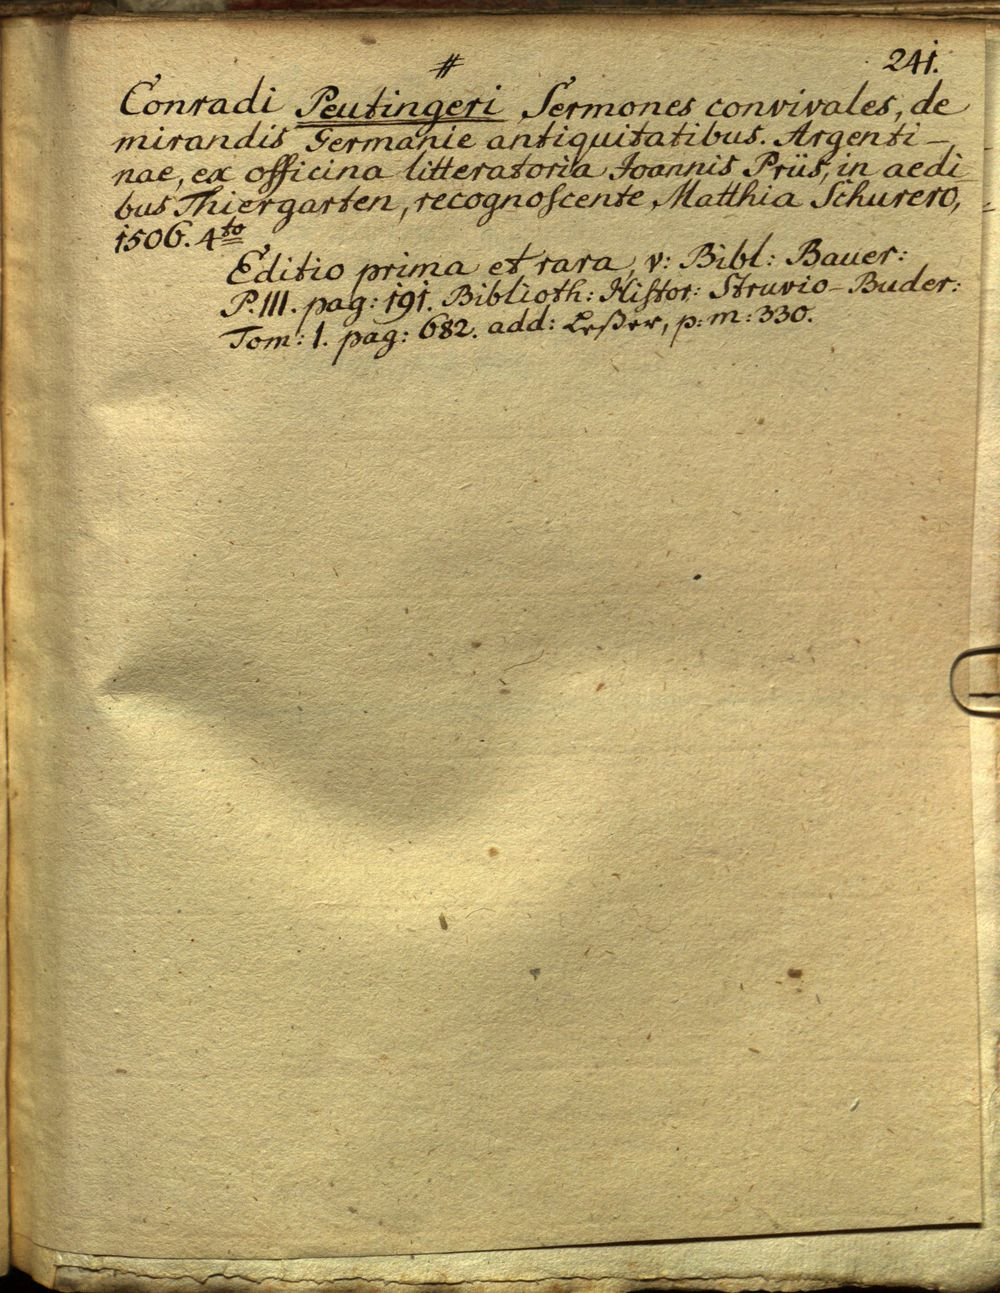 #
241.
Conradi Peutingeri Sermones convivales, de
mirandis Germanie antiquitatibus. Argenti-
nae, ex officina litteratoria Joannis Prüs, in aedi
bus Thiergarten, recognoscente Matthia Schurero,
1506. 4to
Editio prima et rara, v: Bibl: Bauer:
P. III. pag: 191. Biblioth: Histor: Struvio-Buder:
Tom: 1. pag: 682. add: Leßer, p: m: 330.